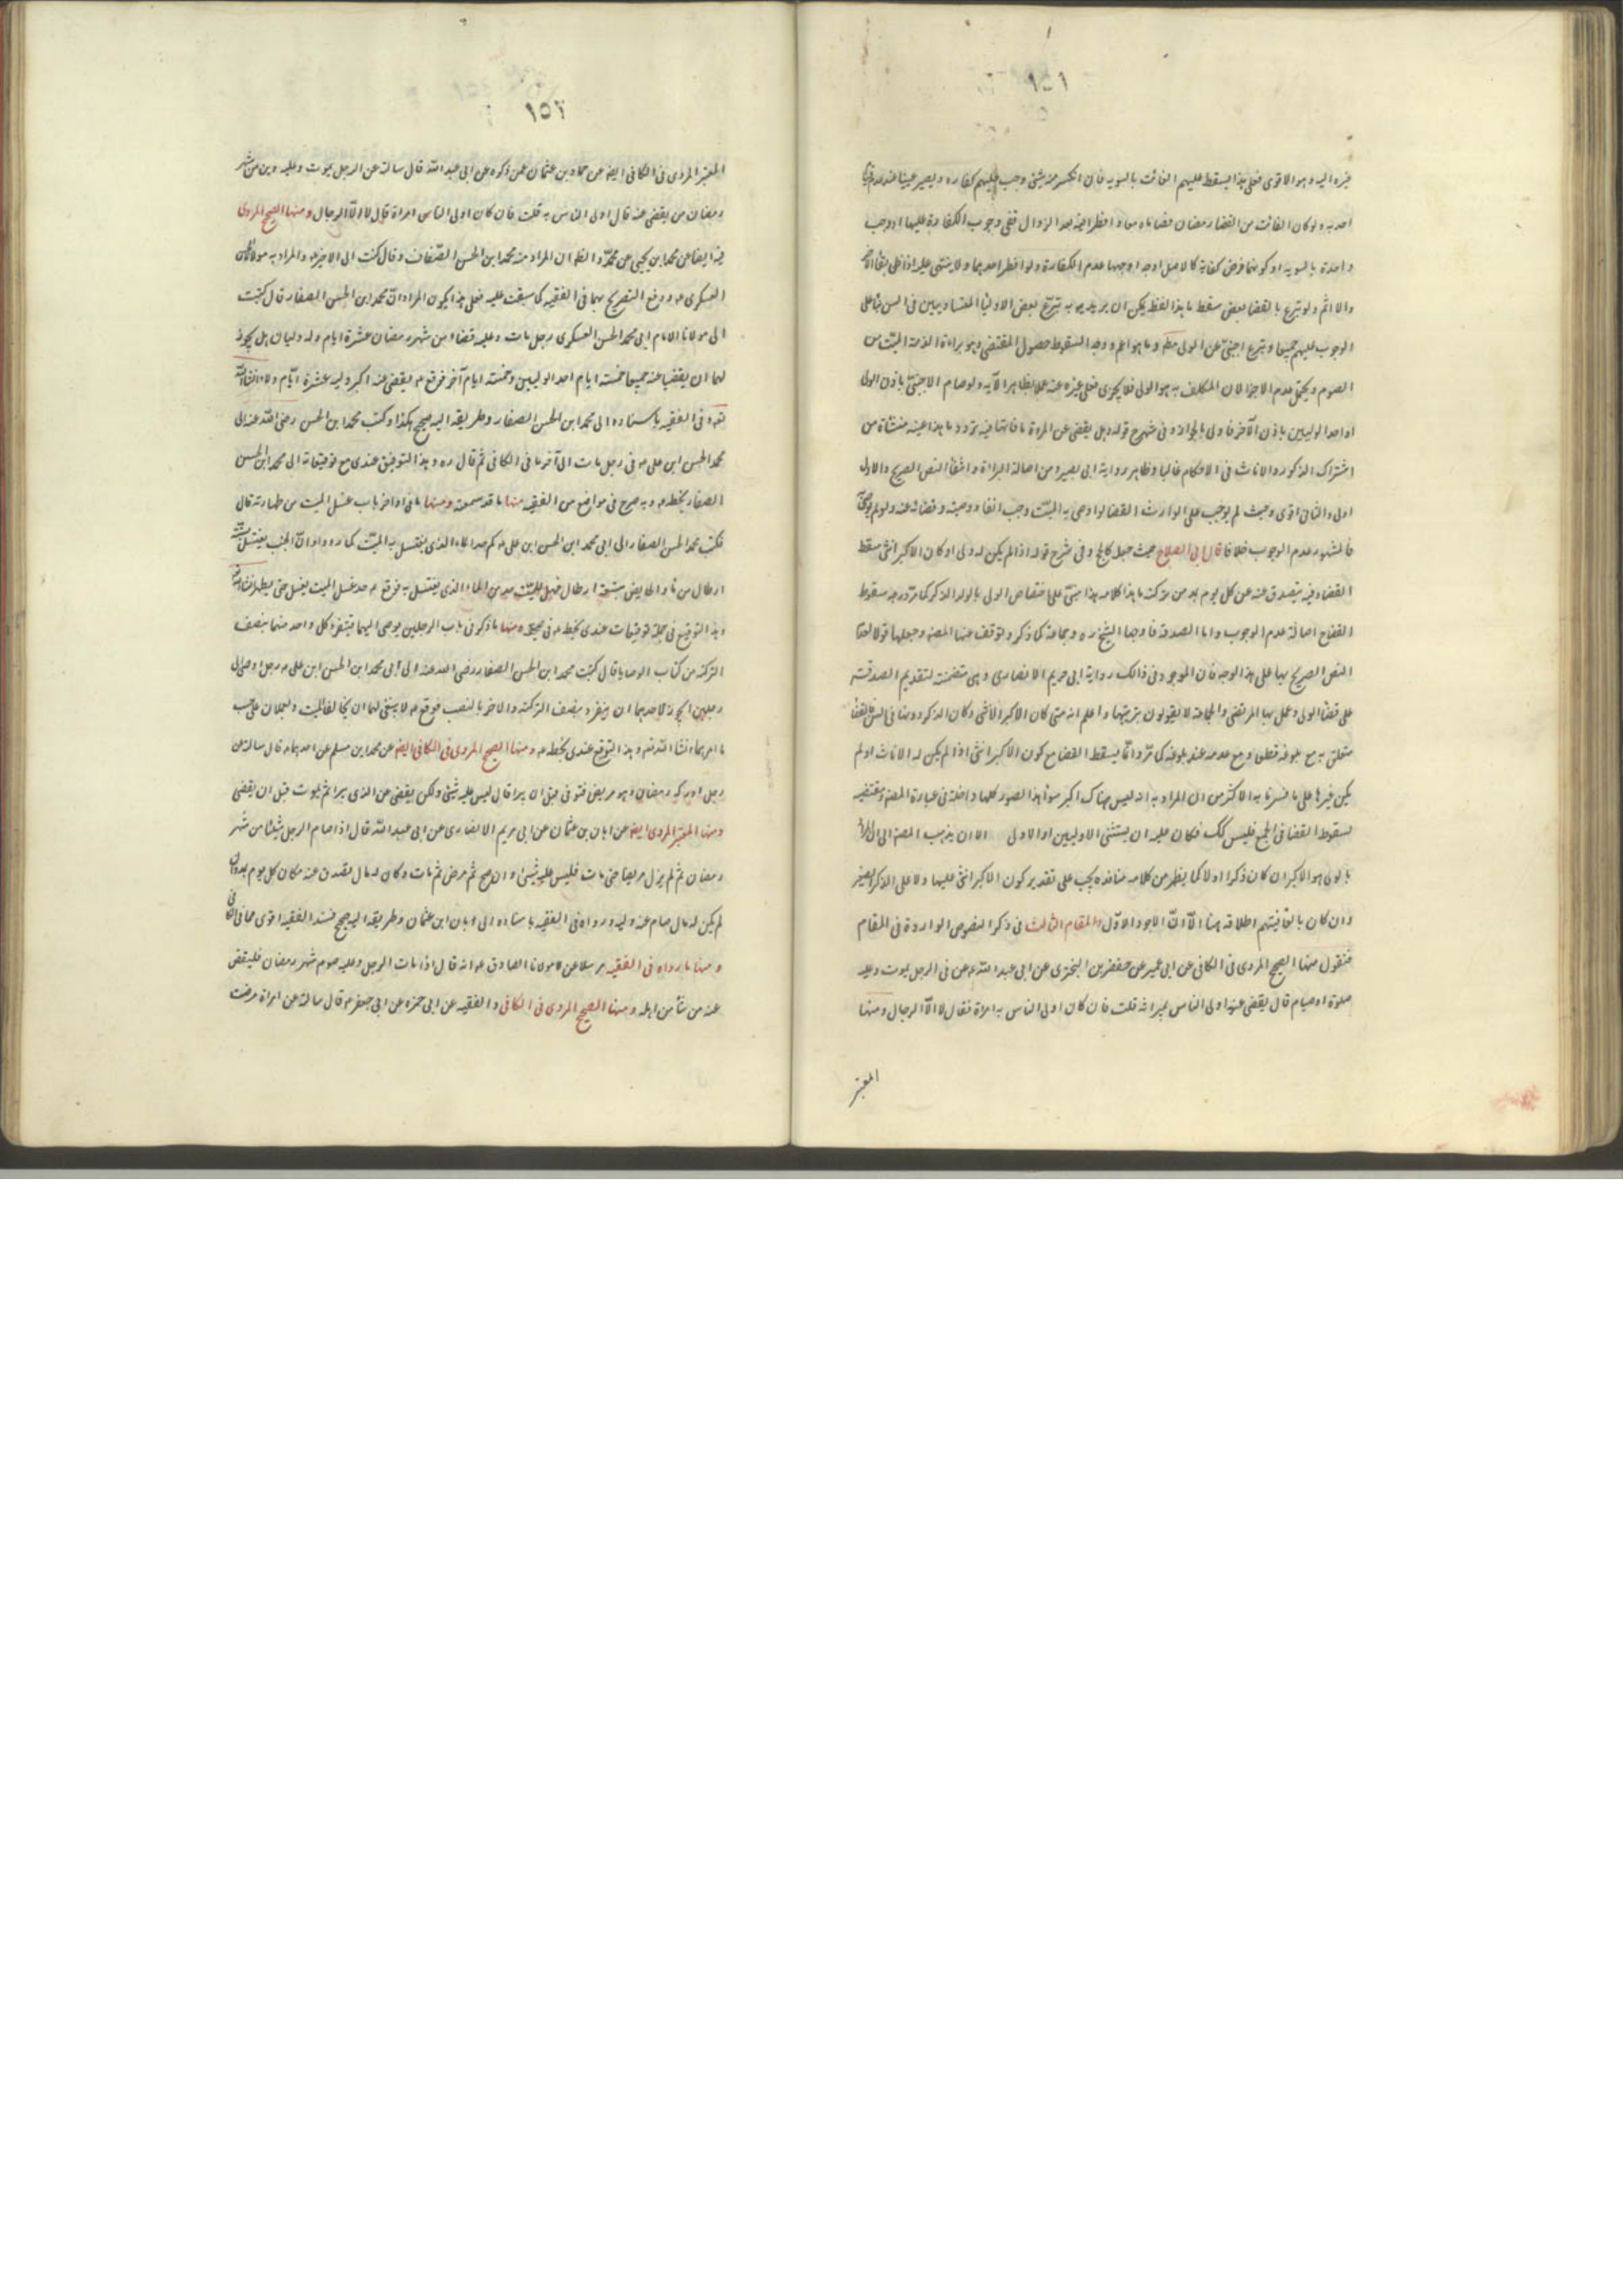 ١٥١
غيره اليه وهو الاقوى فعلى هذا يسقط عليهم الفائت بالسويه فان انكسر منه شئ وجب عليهم كفاره ويصير عينا عند عدم
احد به ولو كان الفائت من القضا رمضان فصاماه معا وافطرا فيه بعد الزوال ففى وجوب الكفارة عليهما او وجب
واحدة بالسويه او كونها فرض كفاية كالاصل اوجه اوجهها عدم الكفارة ولو افطر احدهما فلا شئ عليه اذا ظن بقاء الاخر
والا اثم ولو تبرع بالقضا بعض سقط ما بهذا لفظ يمكن ان يريد به تبرع بعض الاوليا المتساويين فى السن بناء على
الوجوب عليهم جميعا وتبرع اجنبى عن الولى مطم وما هو اعم ووجه السقوط حصول المقتضى وهو براءة الذمة الميت من
الصوم ويحتمل عدم الاجزا لان المكلف به هو الولى فلا يجزى فعل غيره عنه عملا بظاهر الآيه ولو صام الاجنبى باذن الولى
او احد الوليين باذن الآخر فاولى بالجواز وفى شرح قوله وهل يقضى عن المرءة ما فاتها فيه تردد ما هذا عينه منشاة من
اشتراك الذكور والاناث فى الاحكام غالبا وظاهر رواية ابى بصير ومن اصالة البراءة وانتفاء النص الصريح والاول
اولى والثانى اقوى وحيث لم يوجب على الوارث القضا لو اوصى به الميت وجب انفاذ وصيته وقضائه عنه ولو لم يوص
فالمشهور عدم الوجوب خلافا قال ابى الصلاح حيث جعله كالحج وفى شرح قوله اذا لم يكن له ولى او كان الاكبر انثى سقط
القضاء وقيل يتصدق عنه عن كل يوم بمد من تركته ما هذا كلامه هذا مبنى على اختصاص الولى بالولد الذكر كما مر ووجه سقوط
القضاح اصالة عدم الوجوب واما الصدقة فاوجبها الشيخ ره وجماعة كما ذكر وتوقف عنها المصنف وجعلها قولا لعدم
النص الصريح بها على هذا الوجه فان الموجود فى ذالك رواية ابى مريم الانصارى وهى متضمنة لتقديم الصدقة
على قضاء الولى وعمل بها المرتضى والجماعة لا يقولون بترتيبها واعلم انه متى كان الاكبر الانثى وكان الذكر دونها فى السن فالقضا
متعلق به مع بلوغه قطعى ومع عدمه عند بلوغه كما مر وانما يسقط القضا مع كون الاكبر انثى اذا لم يكن له الا اناث او لم
يكن غيرها على ما فسرنا به الاكثر من ان المراد به انه ليس هناك اكبر موته هذا الصور كلها داخلة فى عبارة المصنف ومقتضيه
لسقوط القضا فى الجميع فليس كك فكان عليه ان يستثنى الاوليين او الاولى الا ان يذهب المصنف الى ان المراد
بالولى هو الاكبر ان كان ذكرا او لا كما يظهر من كلامه عنده يجب على تقدير كون الاكبر انثى عليها ولا على الذكر الصغير
وان كان بالقائهم اطلاقه هنا الا ان الاجود الاول والمقام الثالث فى ذكر النصوص الواردة فى المقام
فنقول منها الصحيح المروى فى الكافى عن ابى عمير عن حفص بن البخترى عن ابى عبد الله ع عن فى الرجل يموت وعليه
صلوة او صيام قال يقضى عنه اولى الناس بميراثه قلت فان كان اولى الناس به امراة فقال لا الا الرجال ومنها
المعتبر
١٥٢
المعتبر المروى فى الكافى ايضا عن حماد بن عثمان عمن ذكره عن ابى عبد الله قال سالته عن الرجل يموت وعليه دين من شهر
رمضان من يقضى عنه قال اولى الناس به قلت فان كان اولى الناس امراة قال لا الا الرجال ومنها الصحيح المروى
فيه ايضا عن محمد ابن يحيى عن محمد والظ ان المراد منه محمد ابن الحسن الصفار وقال كتبت الى الاخير ع والمراد به مولانا
العسكرى ع ووقع التصريح بهما فى الفقيه كما سبقت عليه فعلى هذا يكون المراد ان محمد ابن الحسن الصفار قال كتبت
الى مولانا الامام ابى محمد الحسن العسكرى رجل مات وعليه قضاء من شهر رمضان عشرة ايام وله وليان هل يجوز
لهما ان يقضيا عنه جميعا خمسة ايام احد الوليين وخمسة ايام آخر فوقع ع يقضى عنه اكبر وليه عشرة ايام ولاء انشاء الله
نعم فى الفقيه باسناده الى محمد ابن الحسن الصفار وطريقه اليه صحيح هكذا وكتب محمد ابن الحسن رضى الله عنه الى
محمد الحسن ابن على ع فى رجل مات الى آخر ما فى الكافى ثم قال ره وهذا التوقيع عندى مع توقيعاته الى محمد ابن الحسن
الصفار بخطه ع وبه صرح فى مواضع من الفقيه منها ما قد سمعته ومنها ما فى اواخر باب غسل الميت من طهارته قال
فكتب محمد الحسن الصفار الى ابى محمد ابن الحسن ابن على ع كم حد الماء الذى يغتسل به الميت كما رووا ان الجنب يغتسل بستة
ارطال من ماء والحايض بتسعة ارطال فهل للميت حد من الماء الذى يغتسل به فوقع ع حد غسل الميت يغسل حتى يطهر انشاء الله
وهذا التوقيع فى جملة توقيعات عندى بخطه ع فى صحيفة ومنها ما ذكر فى باب الرجلين يوصى اليهما فينفرد كل واحد منهما بنصف
التركة من كتاب الوصايا قال كتبت محمد ابن الحسن الصفار رضى الله عنه الى ابى محمد ابن الحسن ابن على ع رجل اوصى الى
رجلين ايجوز لاحدهما ان ينفرد بنصف التركة والاخر بالنصف فوقع ع لا ينبغى لهما ان يخالفا الميت ويعملان على حسب
ما امرهما انشاء الله تعه وهذا التوقيع عندى بخطه ع ومنها الصحيح المروى فى الكافى ايضا عن محمد ابن مسلم عن احدهما ع قال سالته عن
رجل ادركه رمضان وهو مريض فتوفى قبل ان يبرا قال ليس عليه شئ ولكن يقضى عن الذى يبرا ثم يموت قبل ان يقضى
ومنها المعتبر المروى ايضا عن ابان بن عثمان عن ابى مريم الانصارى عن ابى عبد الله قال اذا صام الرجل شيئا من شهر
رمضان ثم لم يزل مريضا حتى مات فليس عليه شئ وان صح ثم مرض ثم مات وكان له مال تصدق عنه مكان كل يوم بمد وان
لم يكن له مال صام عنه وليه ورواه فى الفقيه باسناده الى ابان ابن عثمان وطريقه اليه صحيح فسند الفقيه اقوى مما فى الكافى
ومنها ما رواه فى الفقيه مرسلا عن مولانا الصادق ع انه قال اذا مات الرجل وعليه صوم شهر رمضان فليقض
عنه من شاء من اهله ومنها الصحيح المروى فى الكافى والفقيه عن ابى حمزه عن ابى جعفر ع قال سالته عن امراة مرضت